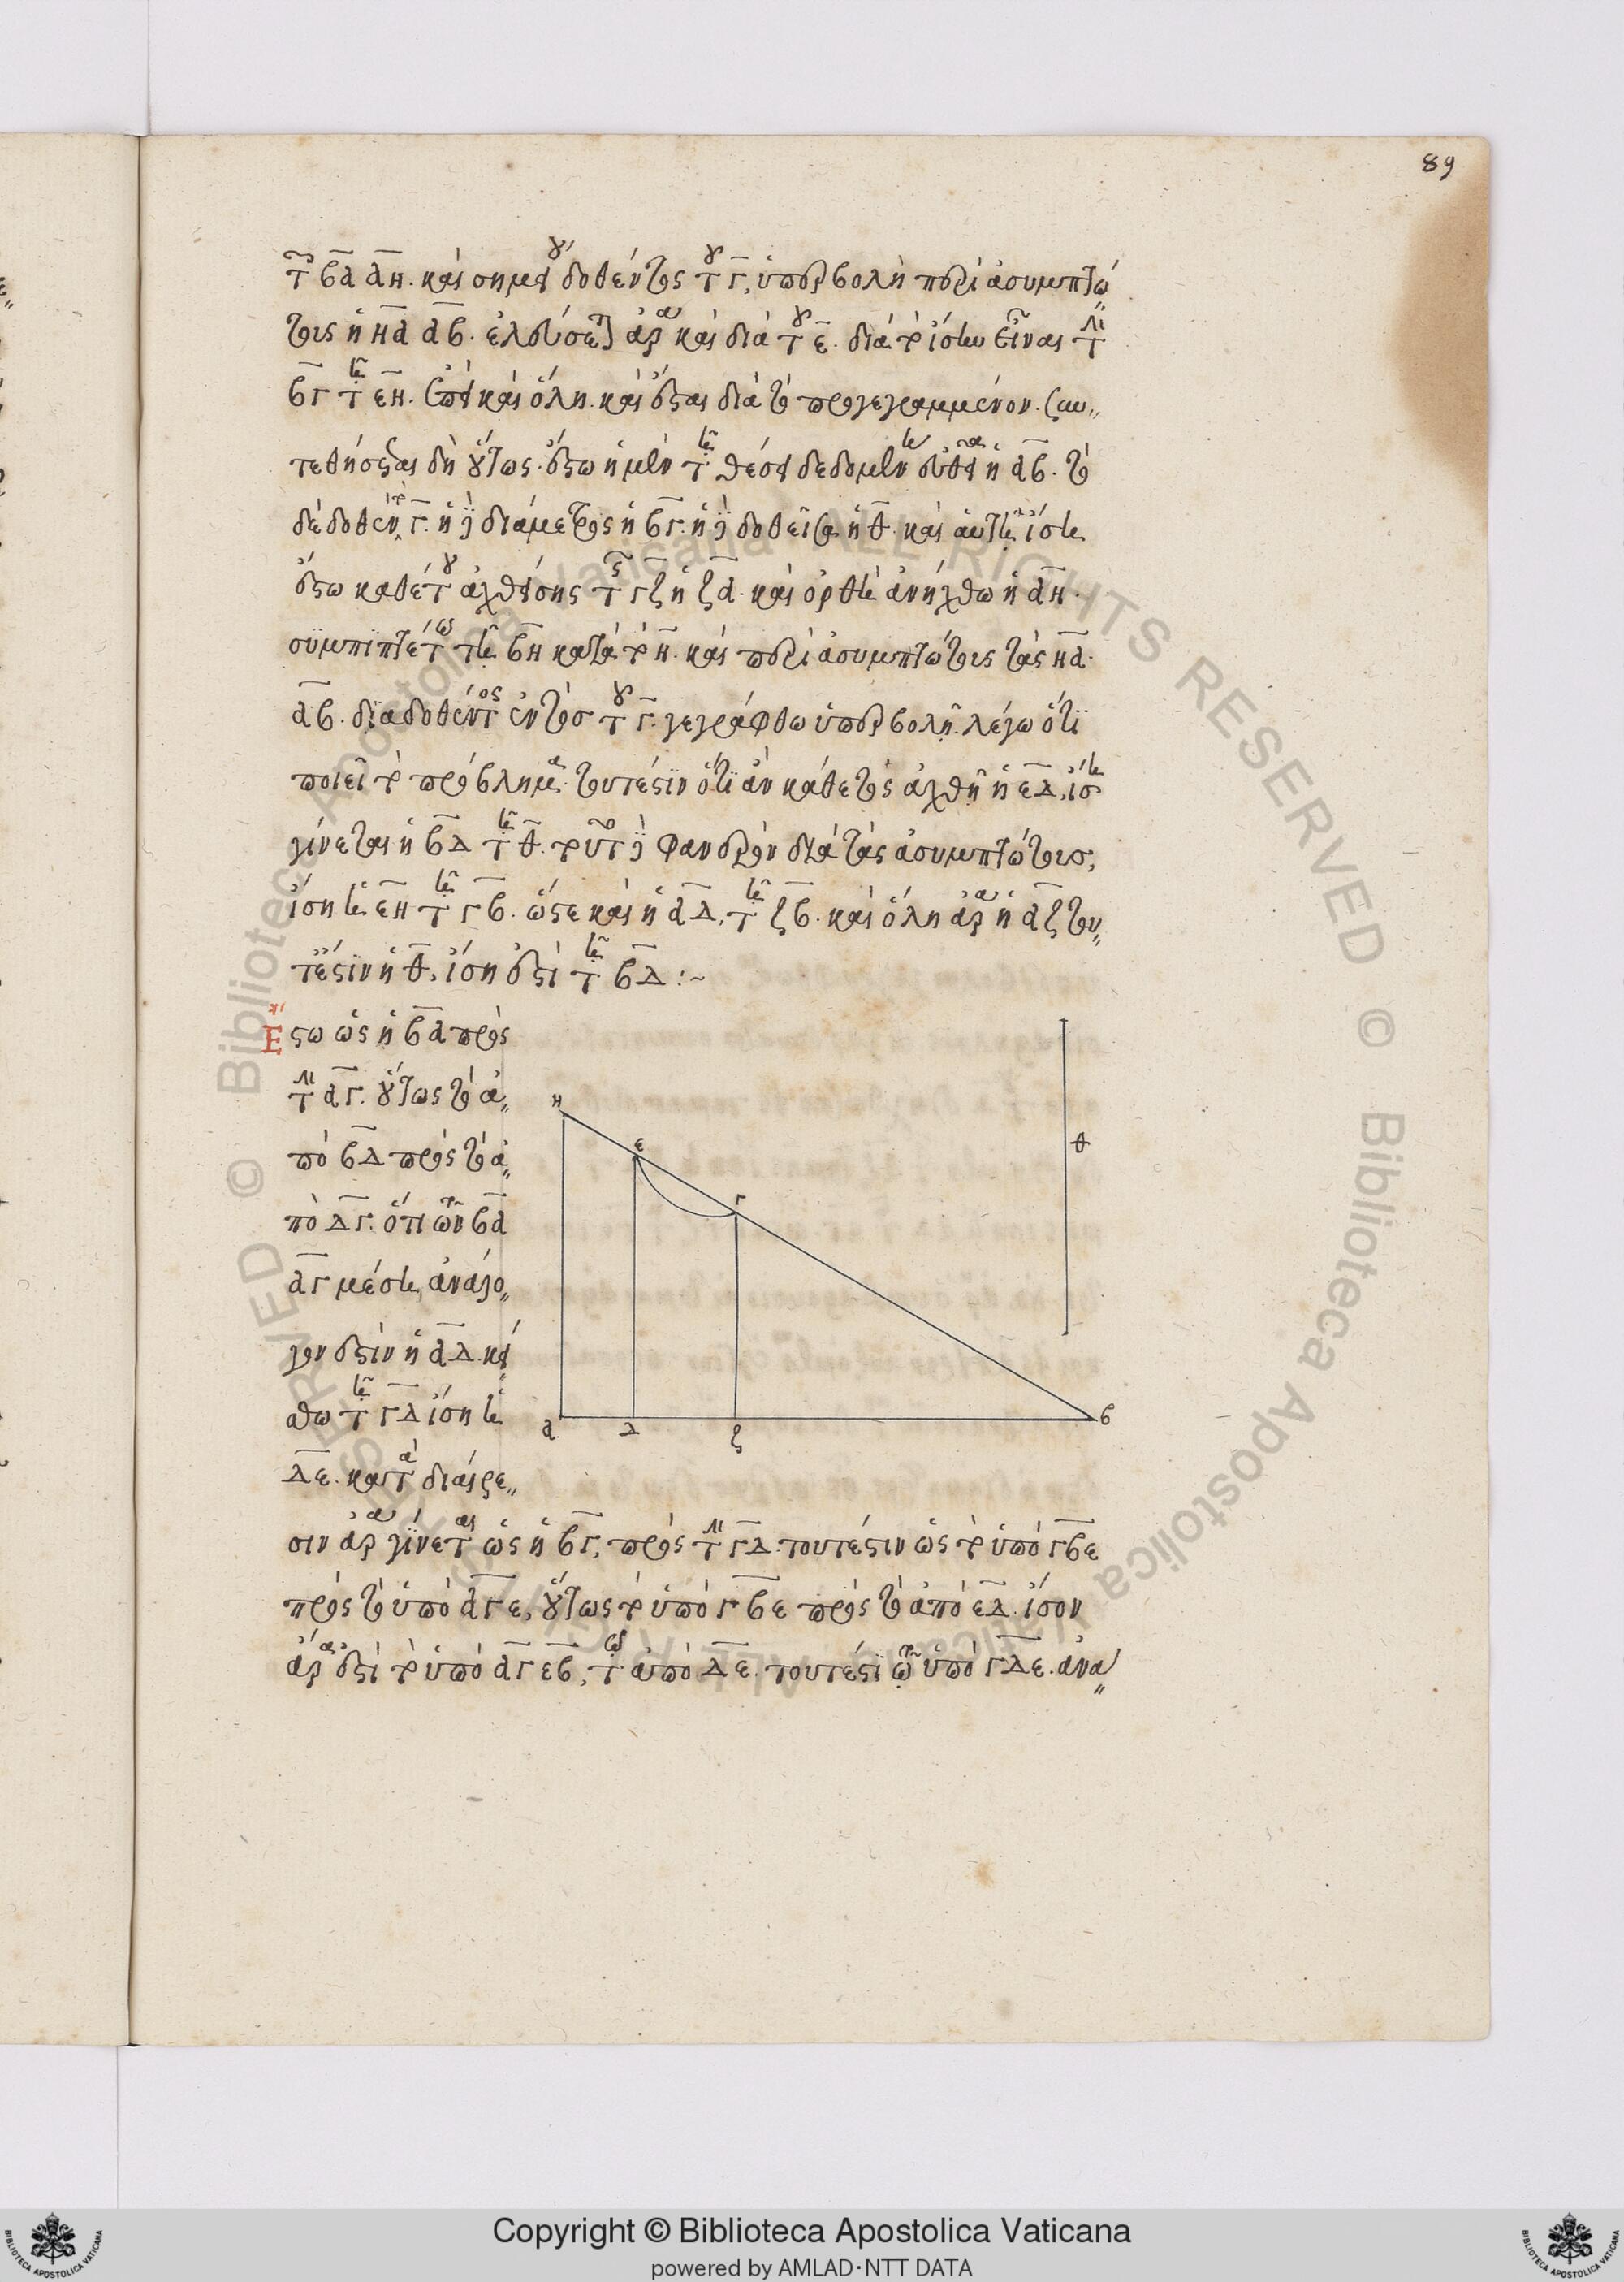 89
τῶν ΒΑ ΑΗ. καὶ σημείου δοθέντος τοῦ Γ, ὑπερβολὴ περὶ ἀσυμπτώ„
τοις ἡ ΗΑ ΑΒ. ἐλεύσεται ἄρα καὶ διὰ τοῦ Ε. διὰ τὸ ἴσην εἶναι τὴν
ΒΓ τῇ ΕΗ. καὶ ὅλη. καὶ ἔσται διὰ τὸ προγεγραμμένον. συν„
τεθήσεται δὴ οὕτως. ἔστω ἡ μὲν τῇ θέσει δεδομένη εὐθεῖα ἡ ΑΒ. τὸ
δὲ δοθὲν Γ. ἡ δὲ διάμετρος ἡ ΒΓ. ἡ δὲ δοθεῖσα ἡ Θ. καὶ αὐτῇ ἴση
ἔστω καθέτου ἀχθείσης τῆς ΓΖ ἡ ΖΑ. καὶ ὀρθὴ ἀνήχθω ἡ ΑΗ.
συμπιπτέτω τῇ ΒΗ κατὰ τὸ Η. καὶ περὶ ἀσυμπτώτοις τὰς ΗΑ.
ΑΒ. διὰ δοθέντος ἐντὸς τοῦ Γ. γεγράφθω ὑπερβολῆ. λέγω ὅτι
ποιεῖ τὸ πρόβλημα. τουτέστιν ὅτι ἂν κάθετος ἀχθῇ ἡ ΕΔ, ἴση
γίνεται ἡ ΒΔ τῇ Θ. τοῦτο δὲ φανερὸν διὰ τὰς ἀσυμπτώτοις,
ἴση ἡ ΕΗ τῇ ΓΒ. ὥστε καὶ ἡ ΑΔ, τῇ ΖΒ. καὶ ὅλη ἄρα ἡ ΑΖ του„
τέστιν ἡ Θ, ἴση ἐστὶ τῇ ΒΔ :~
Ἔστω ὡς ἡ ΒΑ πρὸς
τὴν ΑΓ. οὕτως τὸ ἀ„
πὸ ΒΔ πρὸς τὸ ἀ„
πὸ ΔΓ. ὅτι τῶν ΒΑ
ΑΓ μέση ἀνάλο„
γον ἐστὶν ἡ ΑΔ. κεί„
σθω τῇ ΓΔ ἴση ἡ
ΔΕ. κατὰ διαίρε„
σιν ἄρα γίνεται ὡς ἡ ΒΓ, πρὸς τὴν ΓΔ. τουτέστιν ὡς τὸ ὑπὸ ΓΒΕ
πρὸς τὸ ὑπὸ ΑΓΕ, οὕτως τὸ ὑπὸ ΓΒΕ πρὸς τὸ ἀπὸ ΕΔ. ἴσον
ἄρα ἐστὶ τὸ ὑπὸ ΑΓ ΕΒ, τῷ ἀπὸ ΔΕ. τουτέστι τῷ ὑπὸ ΓΔΕ. ἀνα„
Η
Ε
Γ
Θ
Α
Δ
Ζ
Β
Copyright © Biblioteca Apostolica Vaticana
powered by AMLAD·NTT DATA